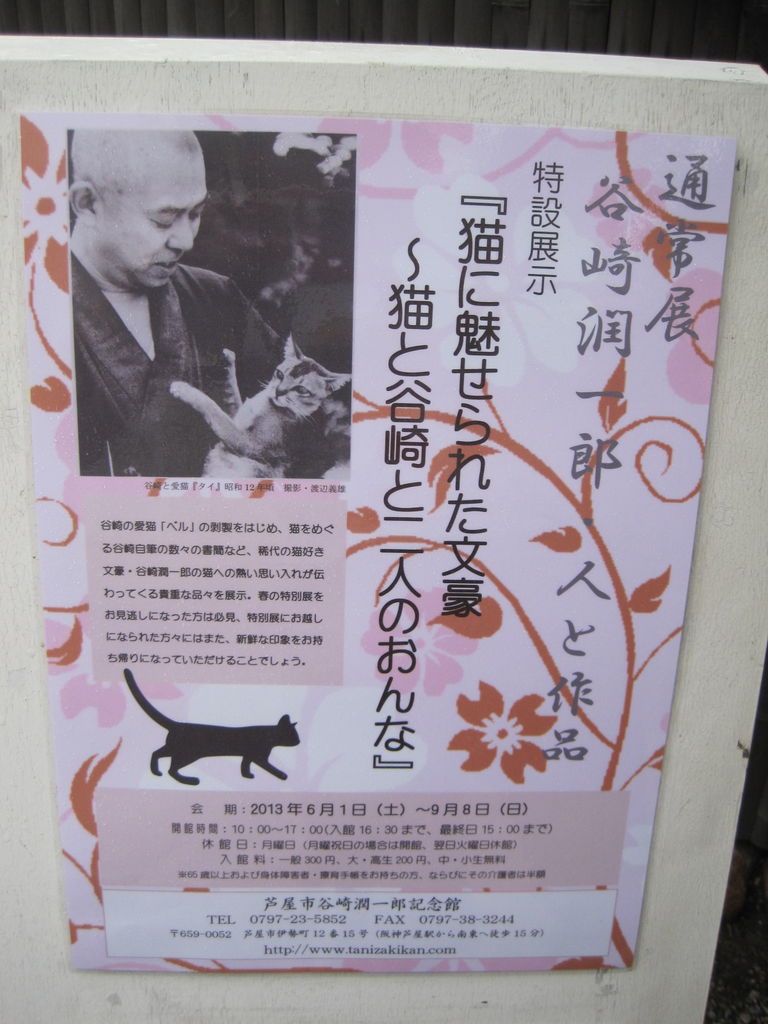 通常展
谷崎潤一郎・人と作品
特設展示
『猫に魅せられた文豪
～猫と谷崎と二人のおんな』
谷崎と愛猫『タイ』昭和12年頃　撮影・渡辺義雄
谷崎の愛猫「ペル」の剥製をはじめ、猫をめぐ
る谷崎自筆の数々の書簡など、稀代の猫好き
文豪・谷崎潤一郎の猫への熱い思い入れが伝
わってくる貴重な品々を展示。春の特別展を
お見逃しになった方は必見、特別展にお越し
になられた方々にはまた、新鮮な印象をお持
ち帰りになっていただけることでしょう。
会　期：2013年6月1日（土）～9月8日（日）
開館時間：10：00～17：00（入館16：30まで、最終日15：00まで）
休館日：月曜日（月曜祝日の場合は開館、翌日火曜日休館）
入館料：一般300円、大・高生200円、中・小生無料
※65歳以上および身体障害者・療育手帳をお持ちの方、ならびにその介護者は半額
芦屋市谷崎潤一郎記念館
TEL　0797-23-5852　FAX　0797-38-3244
〒659-0052　芦屋市伊勢町12番15号（阪神芦屋駅から南東へ徒歩15分）
http://www.tanizakikan.com